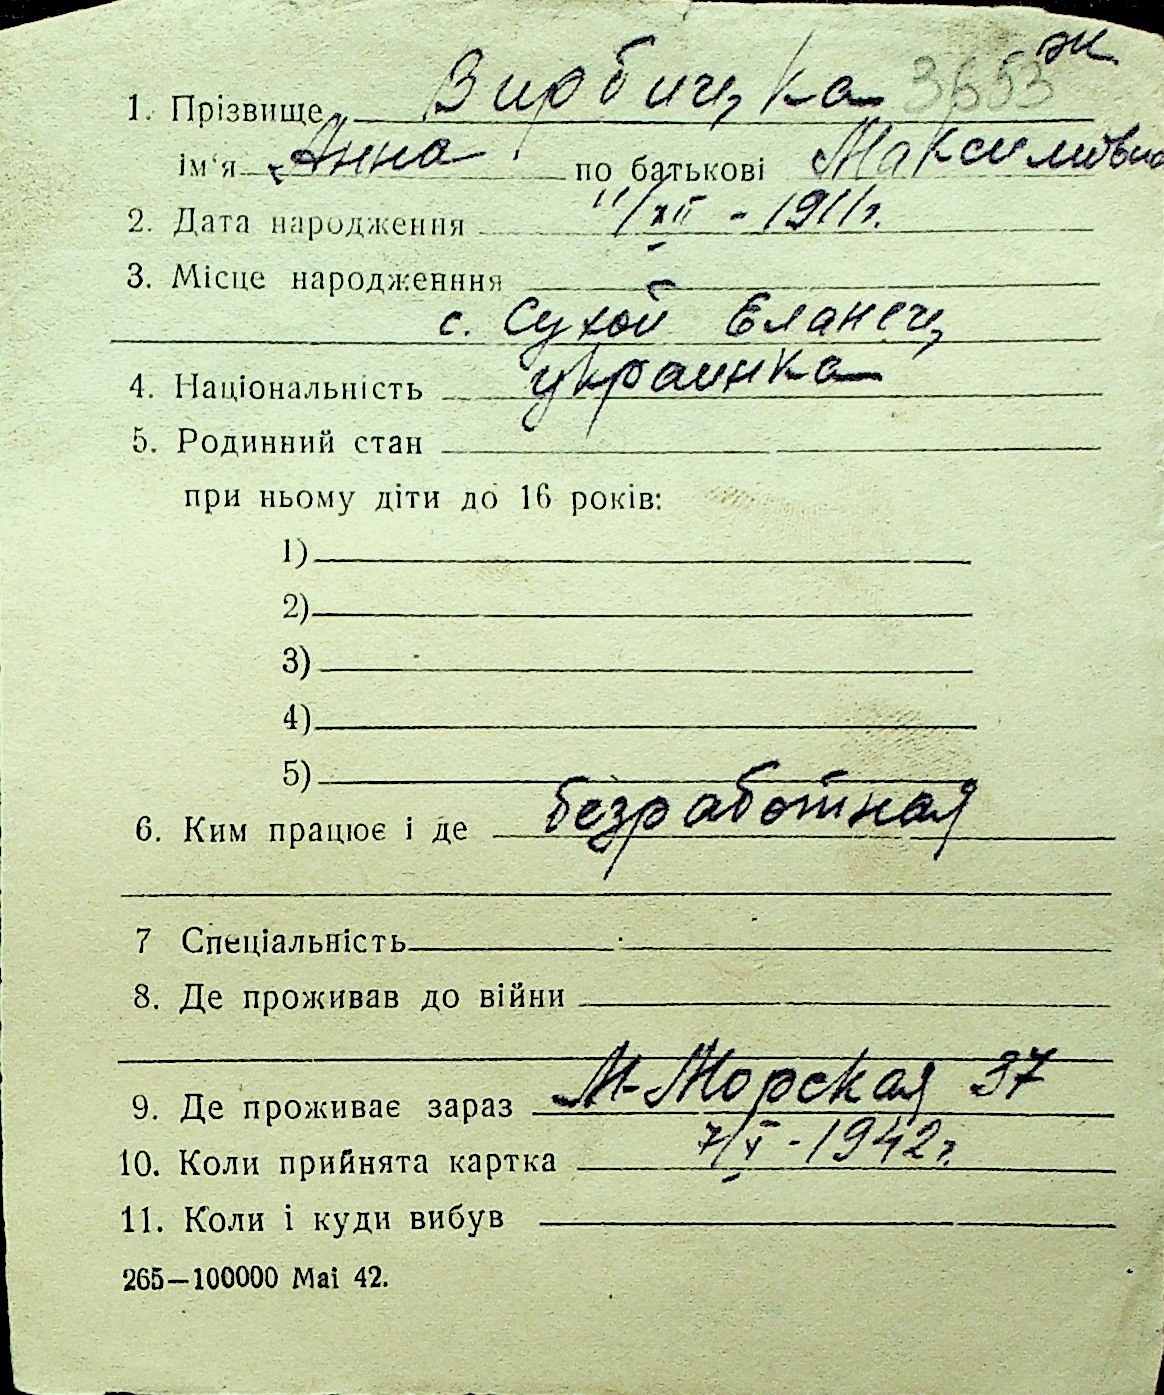 жс
1. Прізвище Вирбицка 3653
ім'я Анна по батькові Максимовна
2. Дата народження 11/XII - 1911г.
3. Місце народженння
с. Сухой Еланец
4. Національність украинка
5. Родинний стан
при ньому діти до 16 років:
1)
2)
3)
4)
5)
6. Ким працює і де безработная
7 Спеціальність
8. Де проживав до війни
9. Де проживає зараз М-Морская 37
10. Коли прийнята картка 7/V - 1942г.
11. Коли і куди вибув
265—100000 Mai 42.